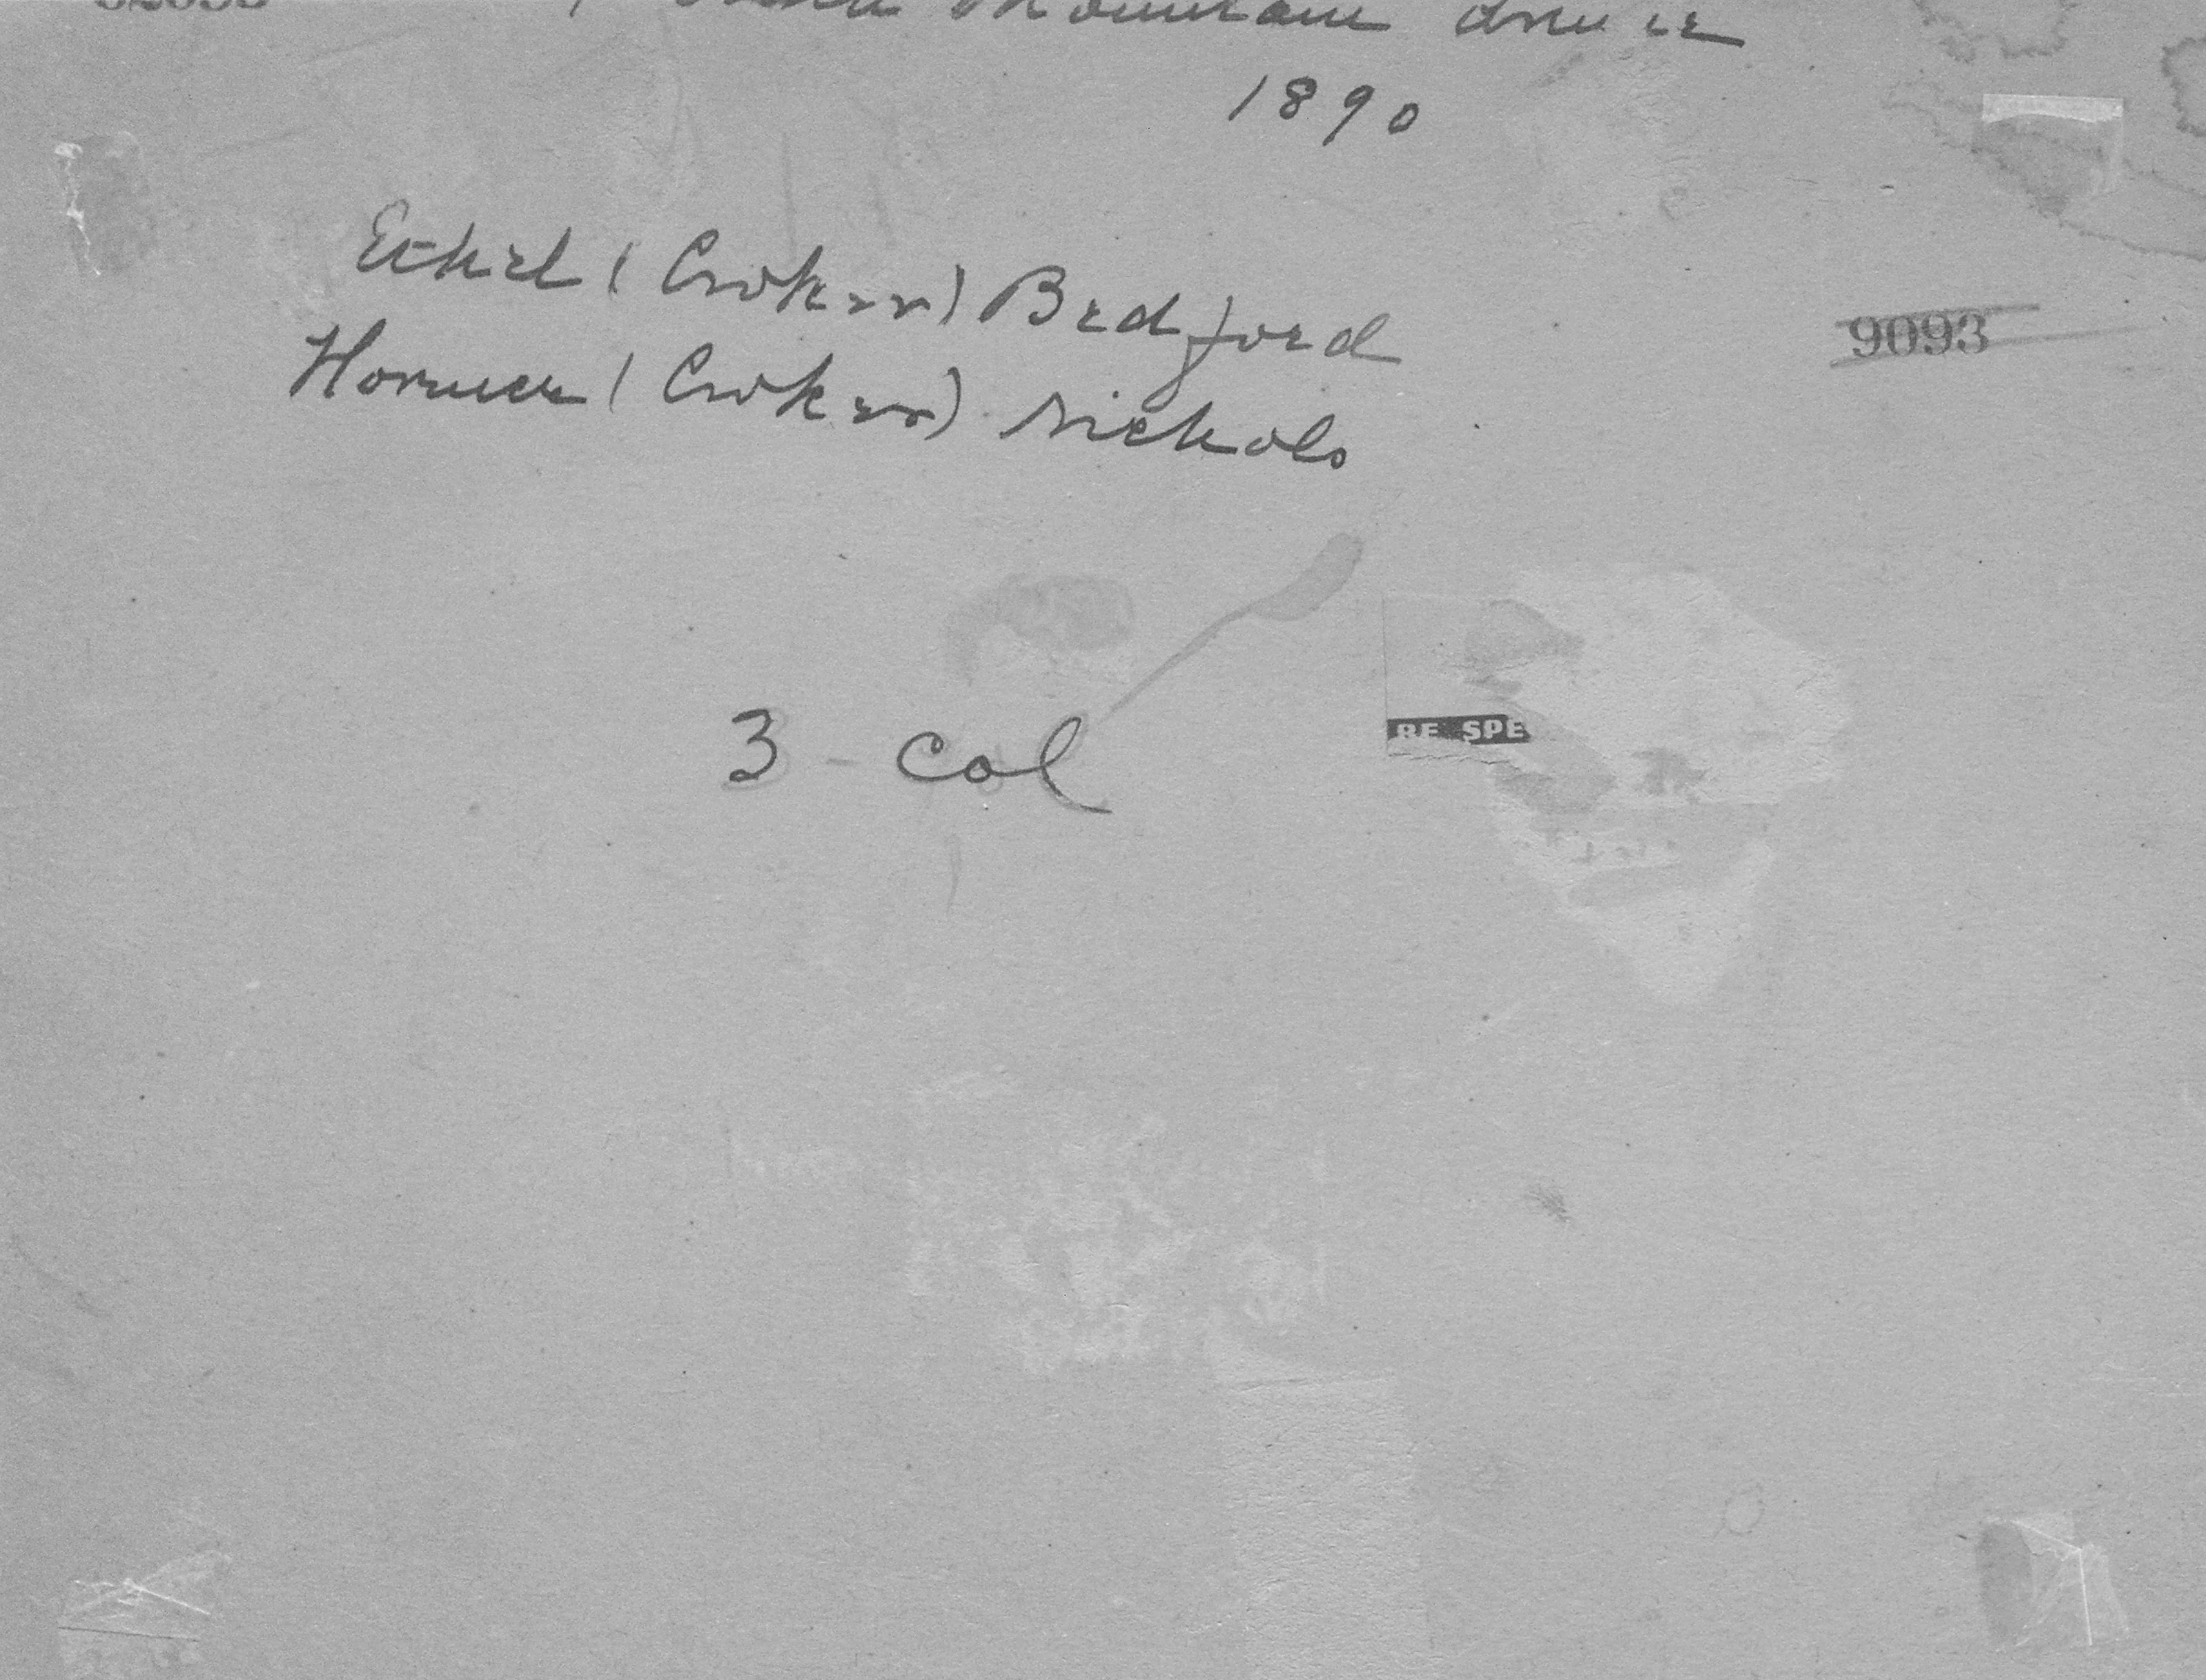 Mountain
1890
Ethel (Croker) Bedford
9093
(Croker) Nichols
3 - col
RE SPE